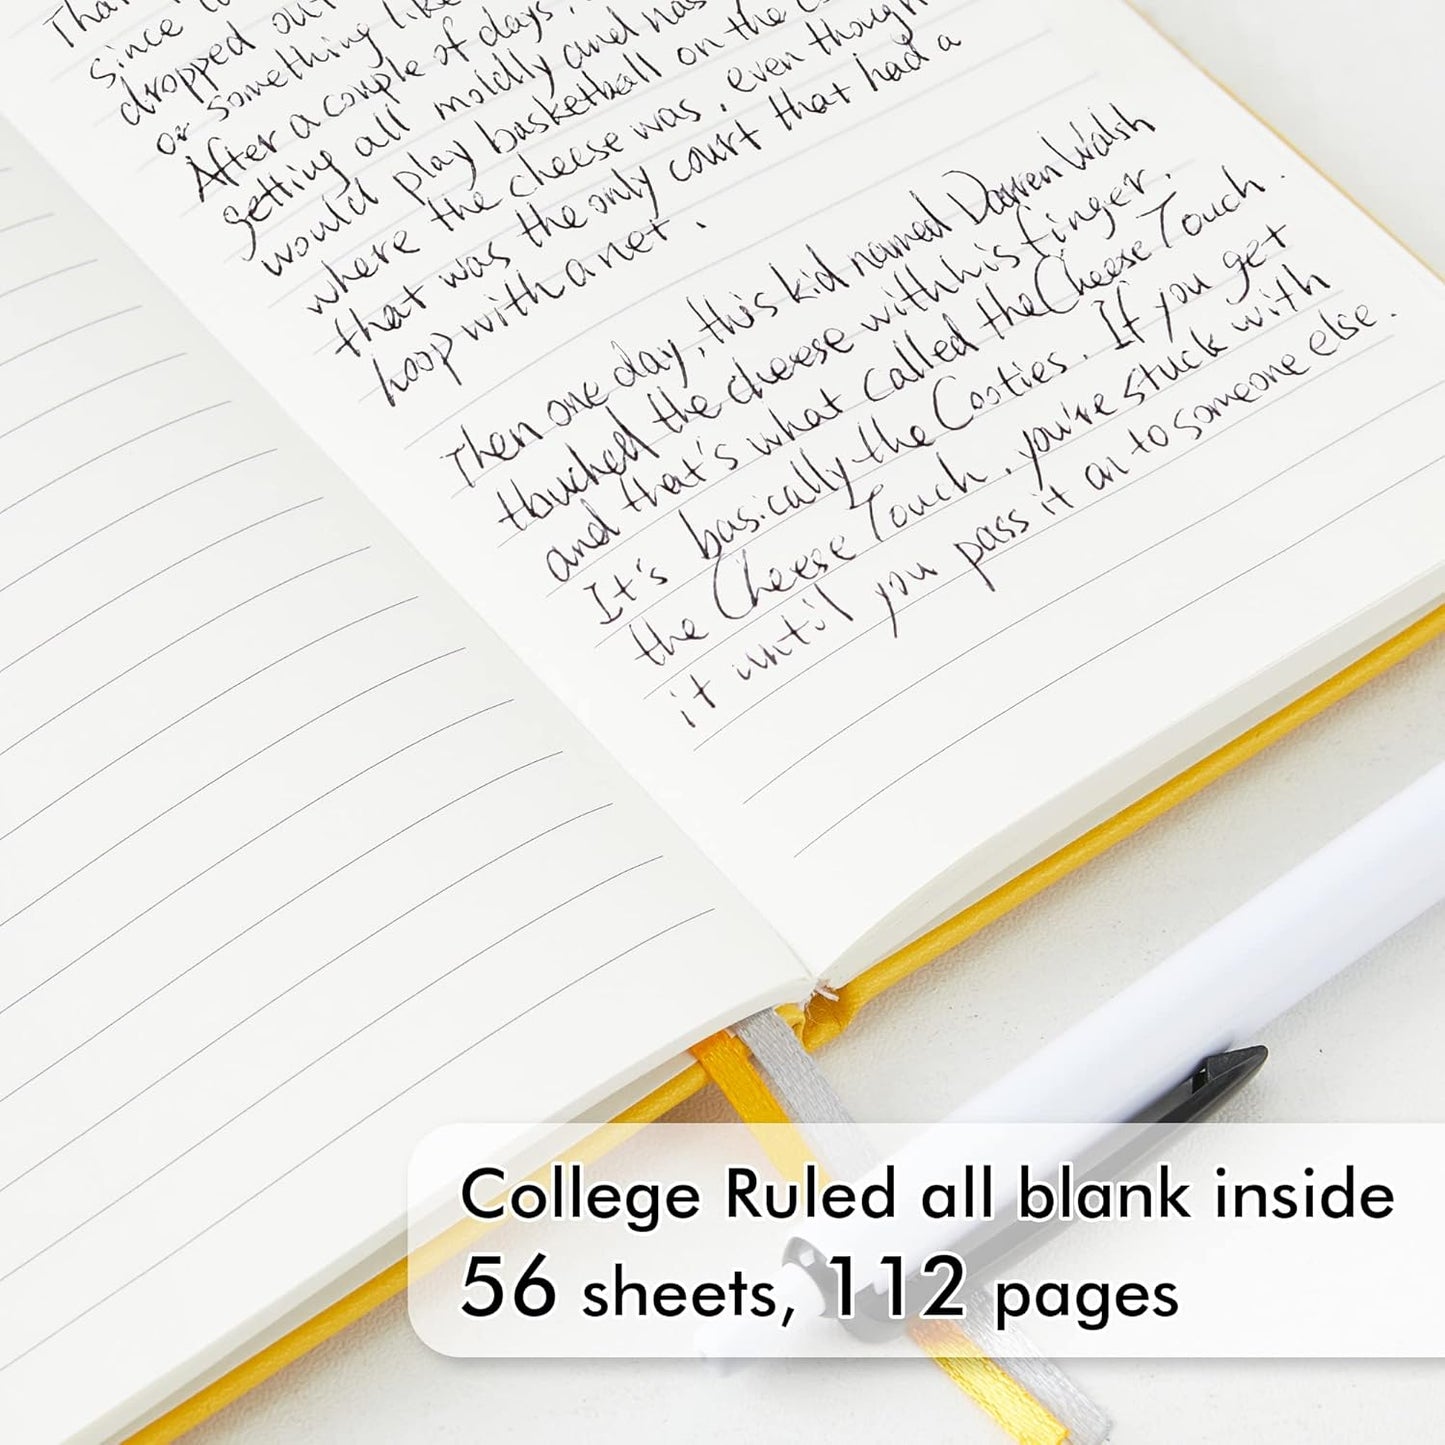 That
since
dropped out
or something like
After a couple of days,
getting all moldly and nas
would play basketball on the c
where the cheese was, even though
that was the only court that had a
hoop with a net.
Then one day, this kid named Darren Walsh
touched the cheese with his finger.
and that's what called the Cheese Touch.
It's basically the Cooties. If you get
the Cheese Touch, you're stuck with
it until you pass it on to someone else.
College Ruled all blank inside
56 sheets, 112 pages